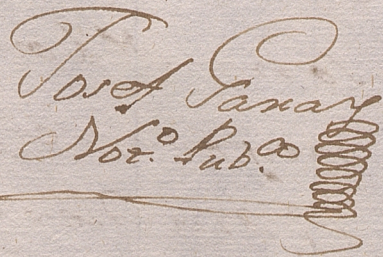 Josef Panay
Not.º Pub.co